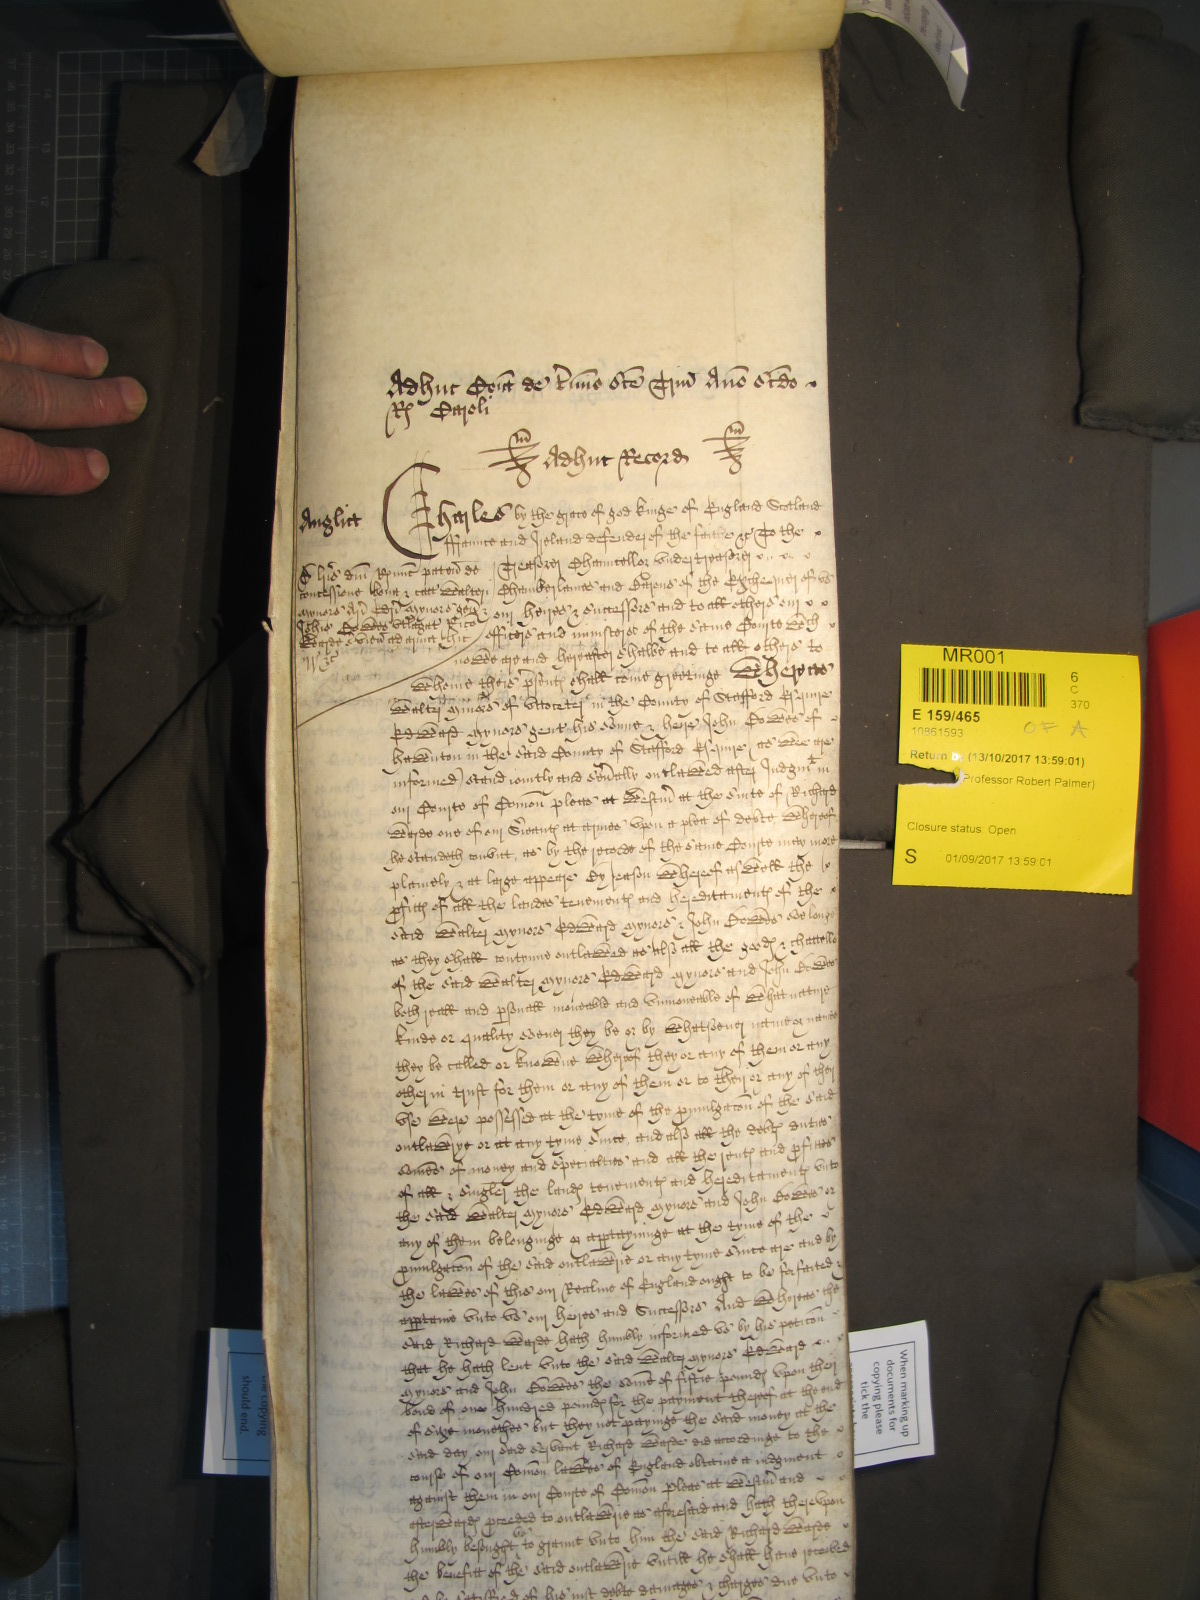 Adhuc Coiā de Tmio Sce Trin Anno Scdo
Rs Caroli
Adhuc Record
Anglia
Charles by the grace of god kinge of England Scotland
ffraunce and Ireland defender of the faith &c To the
Treasorer Chauncellor undertreasorer
Chamberlaines and Barons of the Exchequer of us
our heires & Successors and to all others our
officers and ministers of the same Courte wch
nowe are and hereafter shalbe and to all others to
whome theis presents shall come greetinge Whereas
Walter Mynors of Uttoceter in the County of Stafford Esquire
Edward Mynors gent his sonne & heire John Cowes of
in the said County of Stafford Esquire (as wee are
informed) stand iointly and severally outlawed after Judgmt in
our Courte of Comon pleas at Westmr at the suite of Richard
Warde one of our Sergeants at armes upon a plea of debte whereof
he standeth convict, as by the records of the same Courte may more
plainely & at large appeare By reason whereof as well the
profits of all the landes tenements and hereditaments of the
said Walter Mynors Edward Mynors & John Cowes soe longe
as they shall contynue outlawed as also all the goods & chattells
of the said Walter Mynors Edward Mynors and John Cowes
both reall and personall moveable and unmoveable of what nature
kinde or quality soever they be or by whatsoever name or names
they be called or knowne whereof they or any of them or any
other in trust for them or any of them or to their or any of their
use were possessed at the tyme of the promulgacon of the said
outlawrye or at any tyme since, and also all the debts duties
somes of money and specialties and all the rents and profites
of all & singler the lands tenements and hereditaments unto
the said Walter Mynors Edward Mynors and John Cowes or
any of them belonginge or apptayninge at the tyme of the
promulgacon of the said outlawrie or any tyme since are and by
the lawes of this our Realme of England ought to be forfaited &
apptaine unto us our heires and Successors And whereas the
said Richard Warde hath humbly informed us by his peticon
that he hath lent unto the said Walter Mynors Edward
Mynors and John Cowes the some of fiftie pounds upon their
bond of one hundred pounds for the payment thereof at the end
of sixe monethes but they not payinge the said money at the
said day our said servant Richard Warde did accordinge to the
course of our Comon lawes of England obtaine a iudgment
against them in our Courte of Comon pleas at Westmr and
afterwards proceeded to outlawrie as aforesaid and hath thereupon
humbly besought us to graunt unto him the said Richard Warde
the benefitt of the said outlawrie untill he shall have received
and be satisfied of his iust debte damages & charges due unto
MR001
6
C
370
E 159/465
10861593
OF A
Return by (13/10/2017 13:59:01)
Professor Robert Palmer)
Closure status: Open
S 01/09/2017 13:59:01
When marking up
documents for
copying please
tick the
the copying
should end.